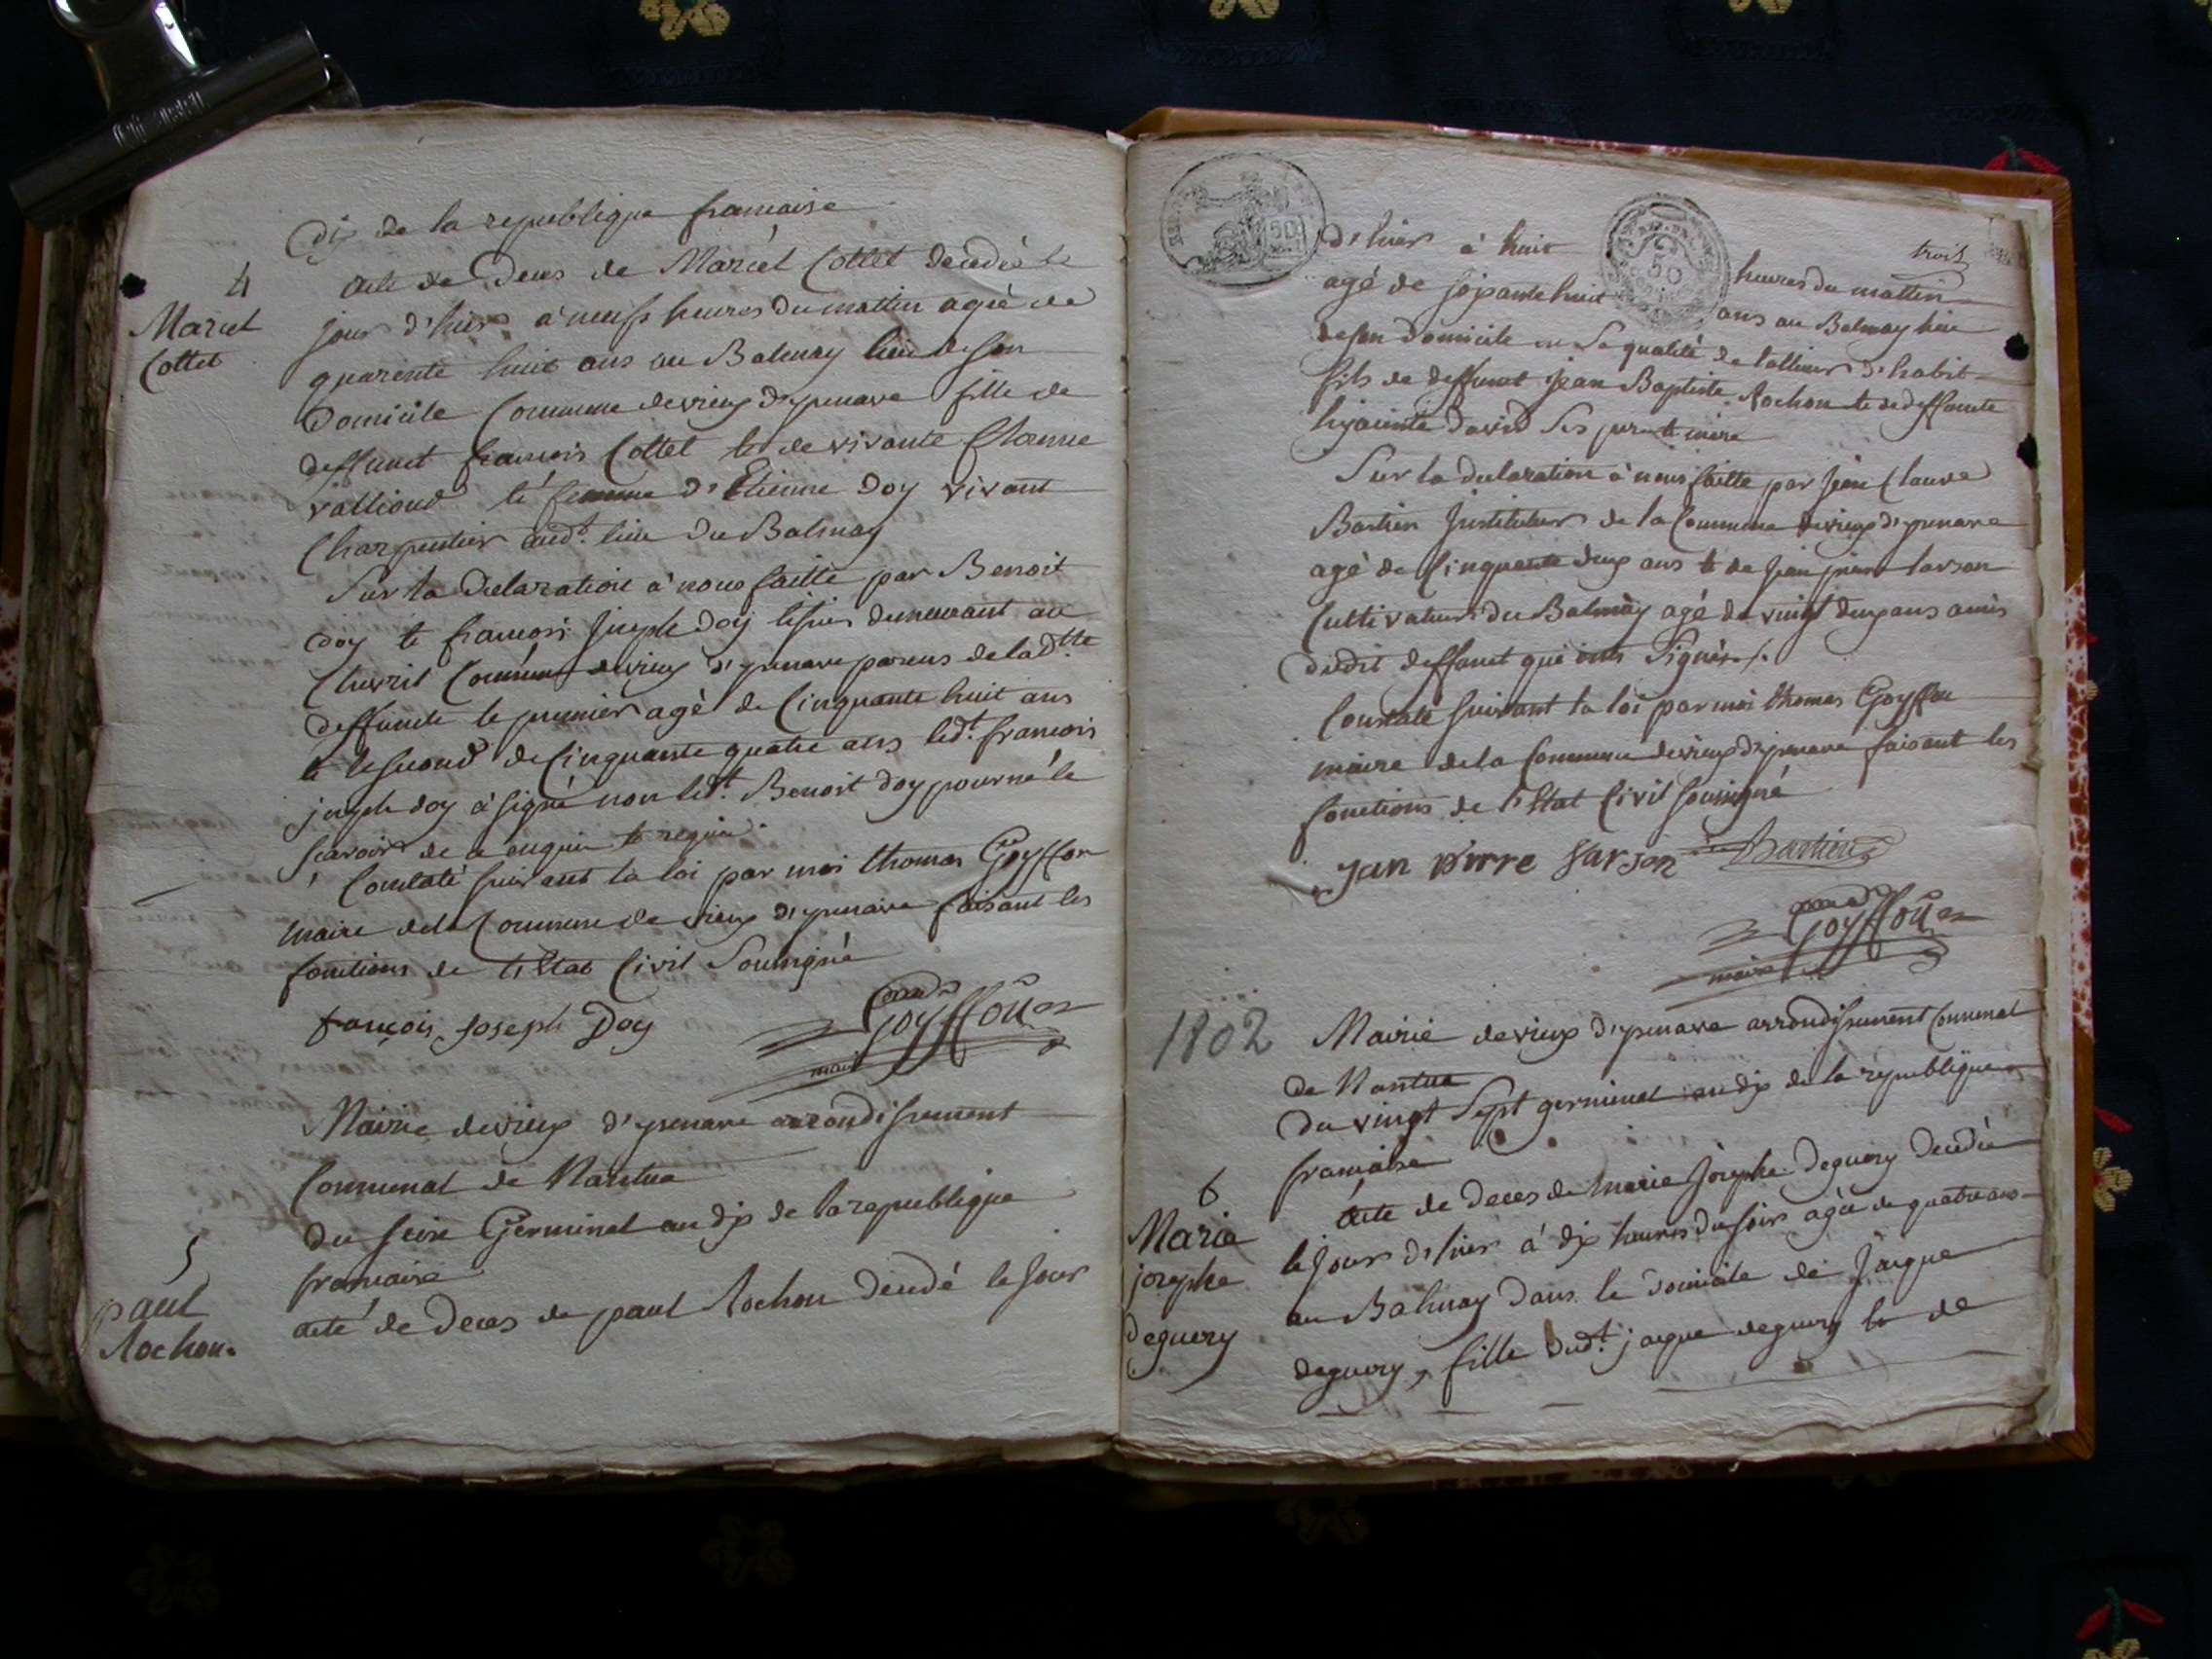 Dix de la republique francaise
4
Marcel
Collet
acte de Deces de Marcel Collet decedéé le
jour d'hier à neufs heures du mattin agéé de
quarente huit ans au Balmay lieu de son
Domicile Commune devieux d'yzenave fille de
deffunct francois Collet et de vivante
valliend et femme d'Etienne Doy vivant
Charpentier audt. lieu du Balmay
Sur la declaration à nous faitte par Benoit
Doy et francois Joseph doy demeurant au
Chevril Commune devieux d'yzenave parens de ladtte
deffuncte le premier agé de Cinquante huit ans
et le second de Cinquante quatre ans ledt. francois
joseph doy à signé non ledt. Benoit doy pour ne le
scavoir de ce enquis et requis.
Constaté suivant la loi par moi thomas Goyffon
maire de la Commune de vieux d'yzenave faisant les
fonctions de l'Etat Civil Soussigné
françois joseph Doy
Goyffon
maire
Mairie devieux d'yzenave arrondissement
Communal de Nantua
Du seize Germinal an dix de la republique
francaise
5
paul
Rochon.
acte de Deces de paul Rochon decedé le jour
trois
d'hier à huit heures du mattin
agé de soixante huit ans au Balmay lieu
de son Domicile en sa qualité de tallieur d'habit
fils de deffunct jean Baptiste Rochon et de deffuncte
hyacinte David ses pere et mere
Sur la declaration à nous faitte par jean Claude
Bastien Instituteur de la Commune devieux d'yzenave
agé de Cinquante deux ans et de jean pierre larson
Cultivateur du Balmay agé de vingt deux ans amis
dudit deffunct qui ont signés /.
Constaté suivant la loi par moi thomas Goyffon
maire de la Commune devieux d'yzenave faisant les
fonctions de l'Etat Civil soussigné
jan pirre larson Bastien
Goyffon
maire
1802
Mairie devieux d'yzenave arrondissement Communal
de Nantua
Du vingt sept germinal an dix de la république
francaise
6
Marie
josephe
deguery
acte de Deces de marie josephe deguery decedée
le jour d'hier à dix heures du soir agée de quatre ans
au Balmay dans le domicile de jacque
deguery, fille dudt. jacque deguery et de